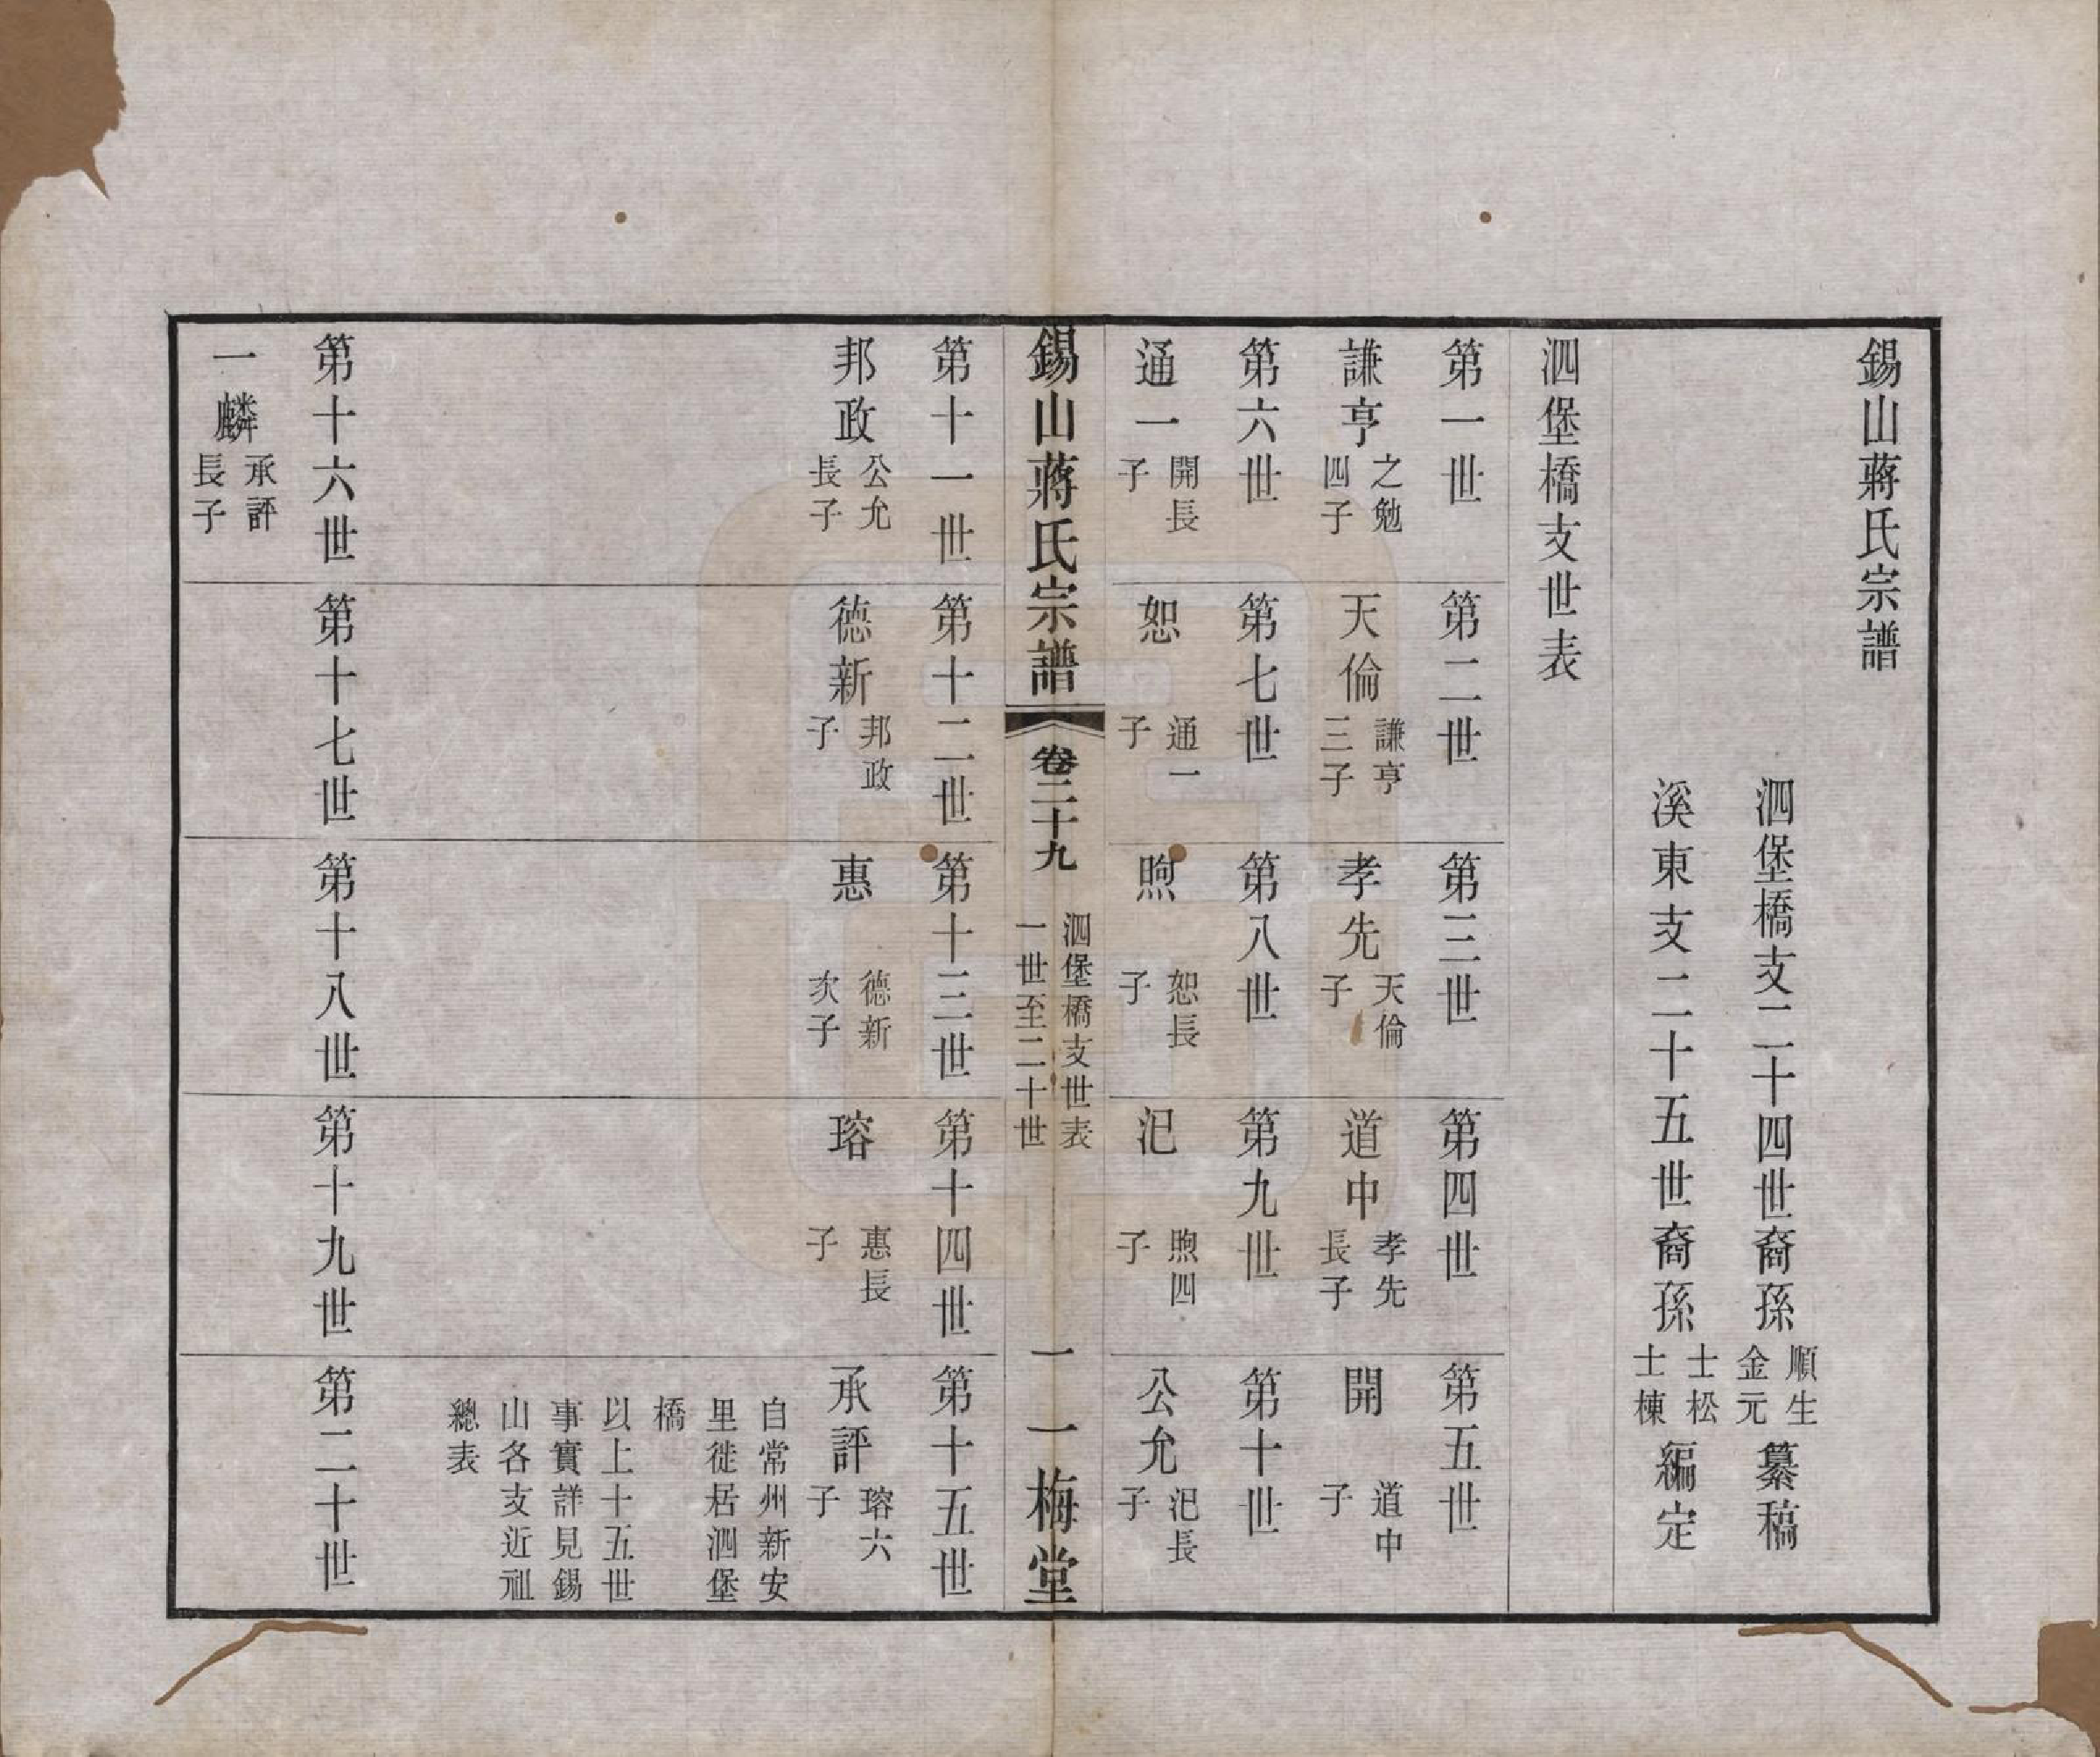 錫山蔣氏宗譜
泗堡橋支二十四世裔孫順生金元纂稿
溪東支二十五世裔孫士松士棟編定
泗堡橋支世表
第一世 第二世 第三世 第四世 第五世
謙亨 之勉四子 天倫 謙亨三子 孝先 天倫子 道中 孝先長子 開 道中子
第六世 第七世 第八世 第九世 第十世
通一 開長子 恕 通一子 煦 恕長子 汜 煦四子 公允 汜長子
錫山蔣氏宗譜 卷二十九 泗堡橋支世表 一世至二十世 一 一梅堂
第十一世 第十二世 第十三世 第十四世 第十五世
邦政 公允長子 德新 邦政子 惠 德新次子 瑢 惠長子 承評 瑢六子
自常州新安
里徙居泗堡
橋
以上十五世
事實詳見錫
山各支近祖
總表
第十六世 第十七世 第十八世 第十九世 第二十世
一麟 承評長子